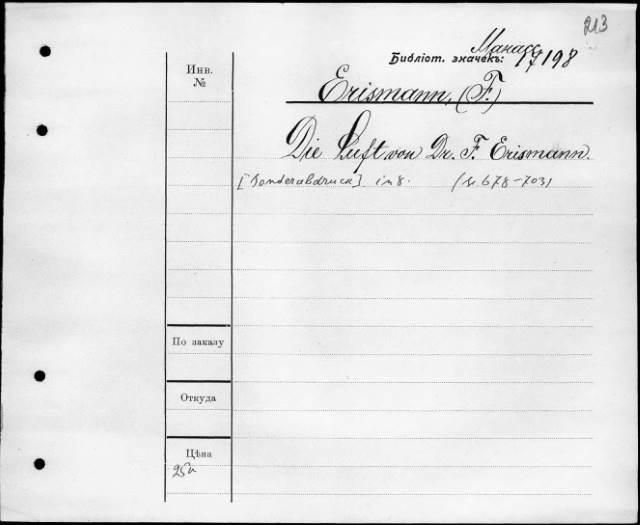 213
Манасс
Библіот. значекъ: 17198
Инв.
№
Erismann, (F.)
Die Luft von Dr. F. Erismann.
[Sonderabdruck] in 8. (S. 678-703)
По заказу
Откуда
Цѣна
25к